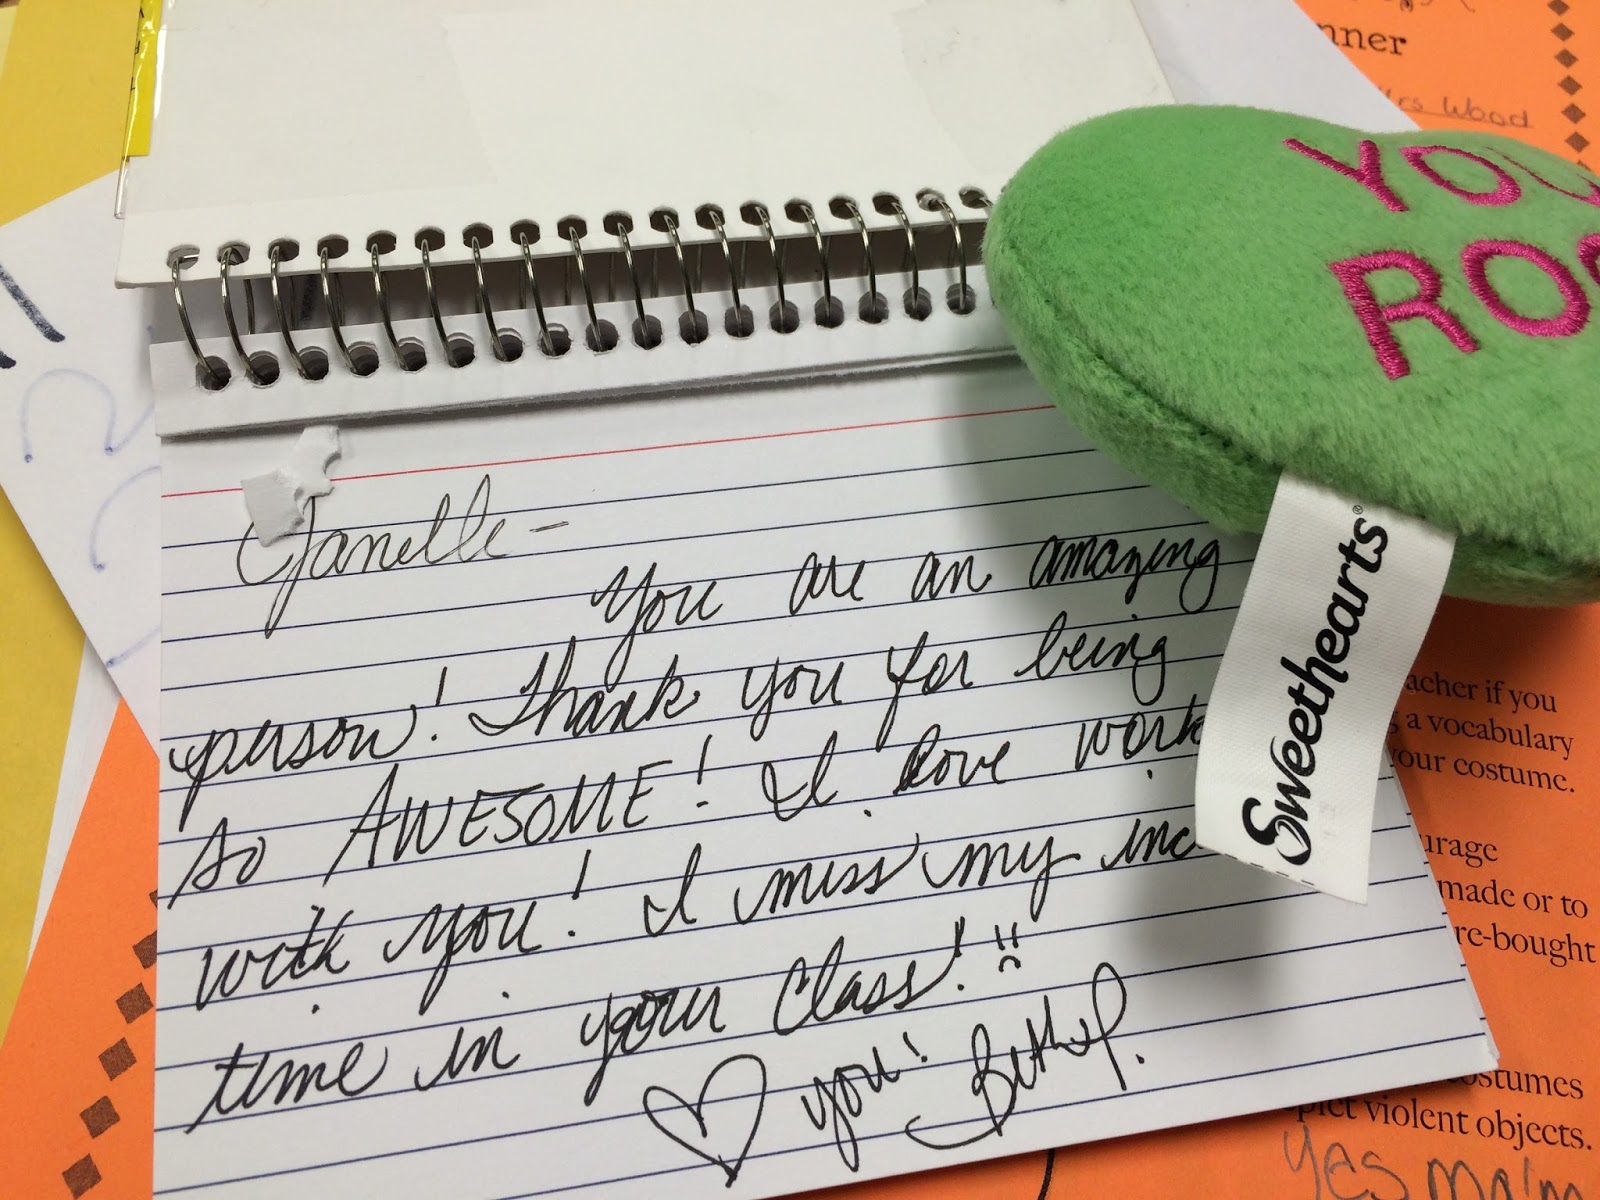 nner
Mrs Wood
YOU
ROC
Sweethearts®
Janelle -
You are an amazing
person! Thank you for being
so AWESOME! I love work
with you! I miss my inc
time in your class! :(
♡ you! Beth P.
acher if you
g a vocabulary
your costume.
urage
made or to
re-bought
costumes
epict violent objects.
Yes